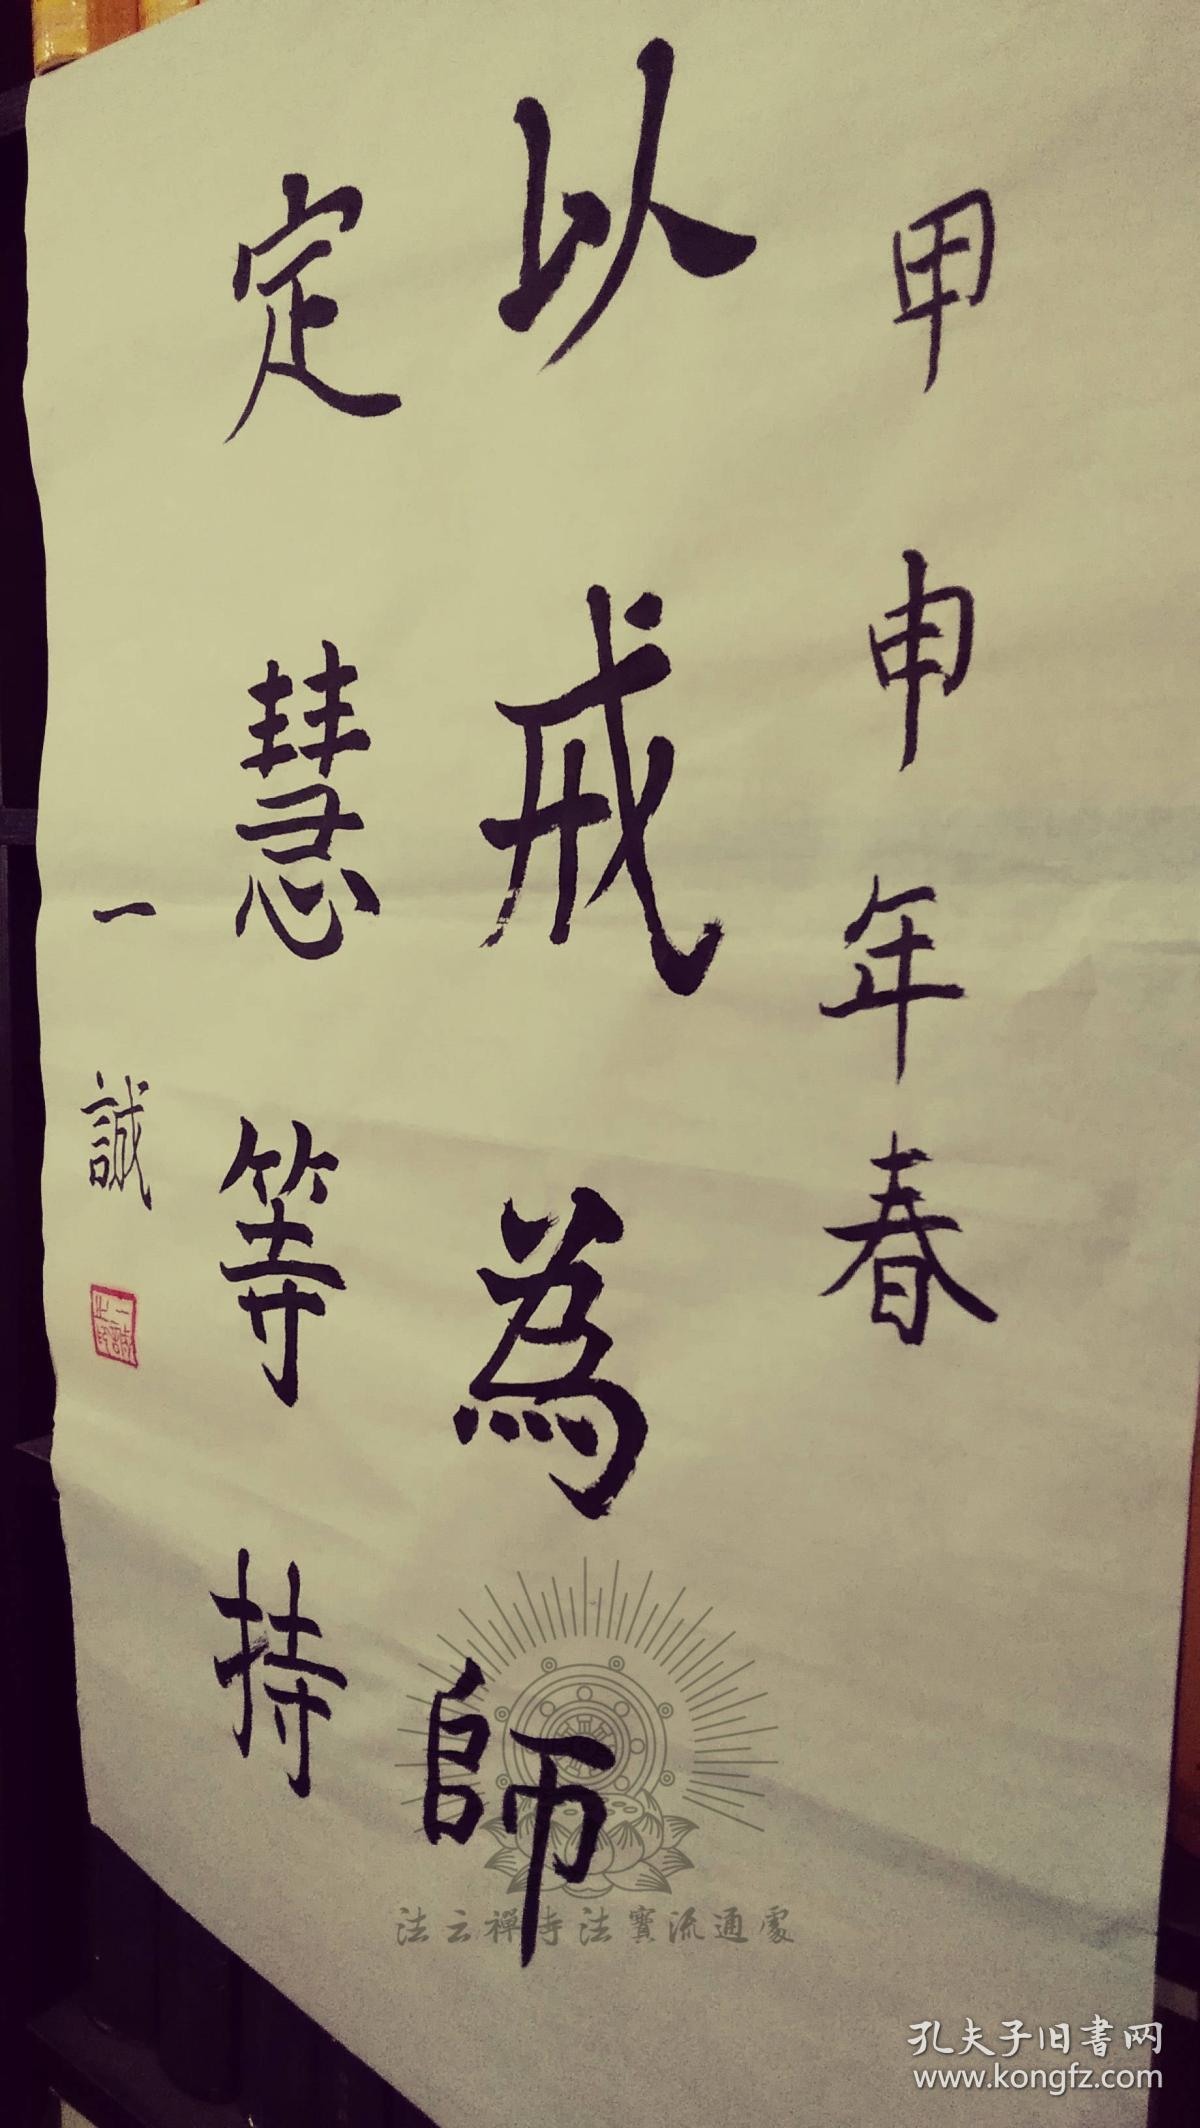 甲申年春
以戒為師
定慧等持
一誠
一誠之印
法云禪寺法寶流通處
孔夫子旧书网
www.kongfz.com